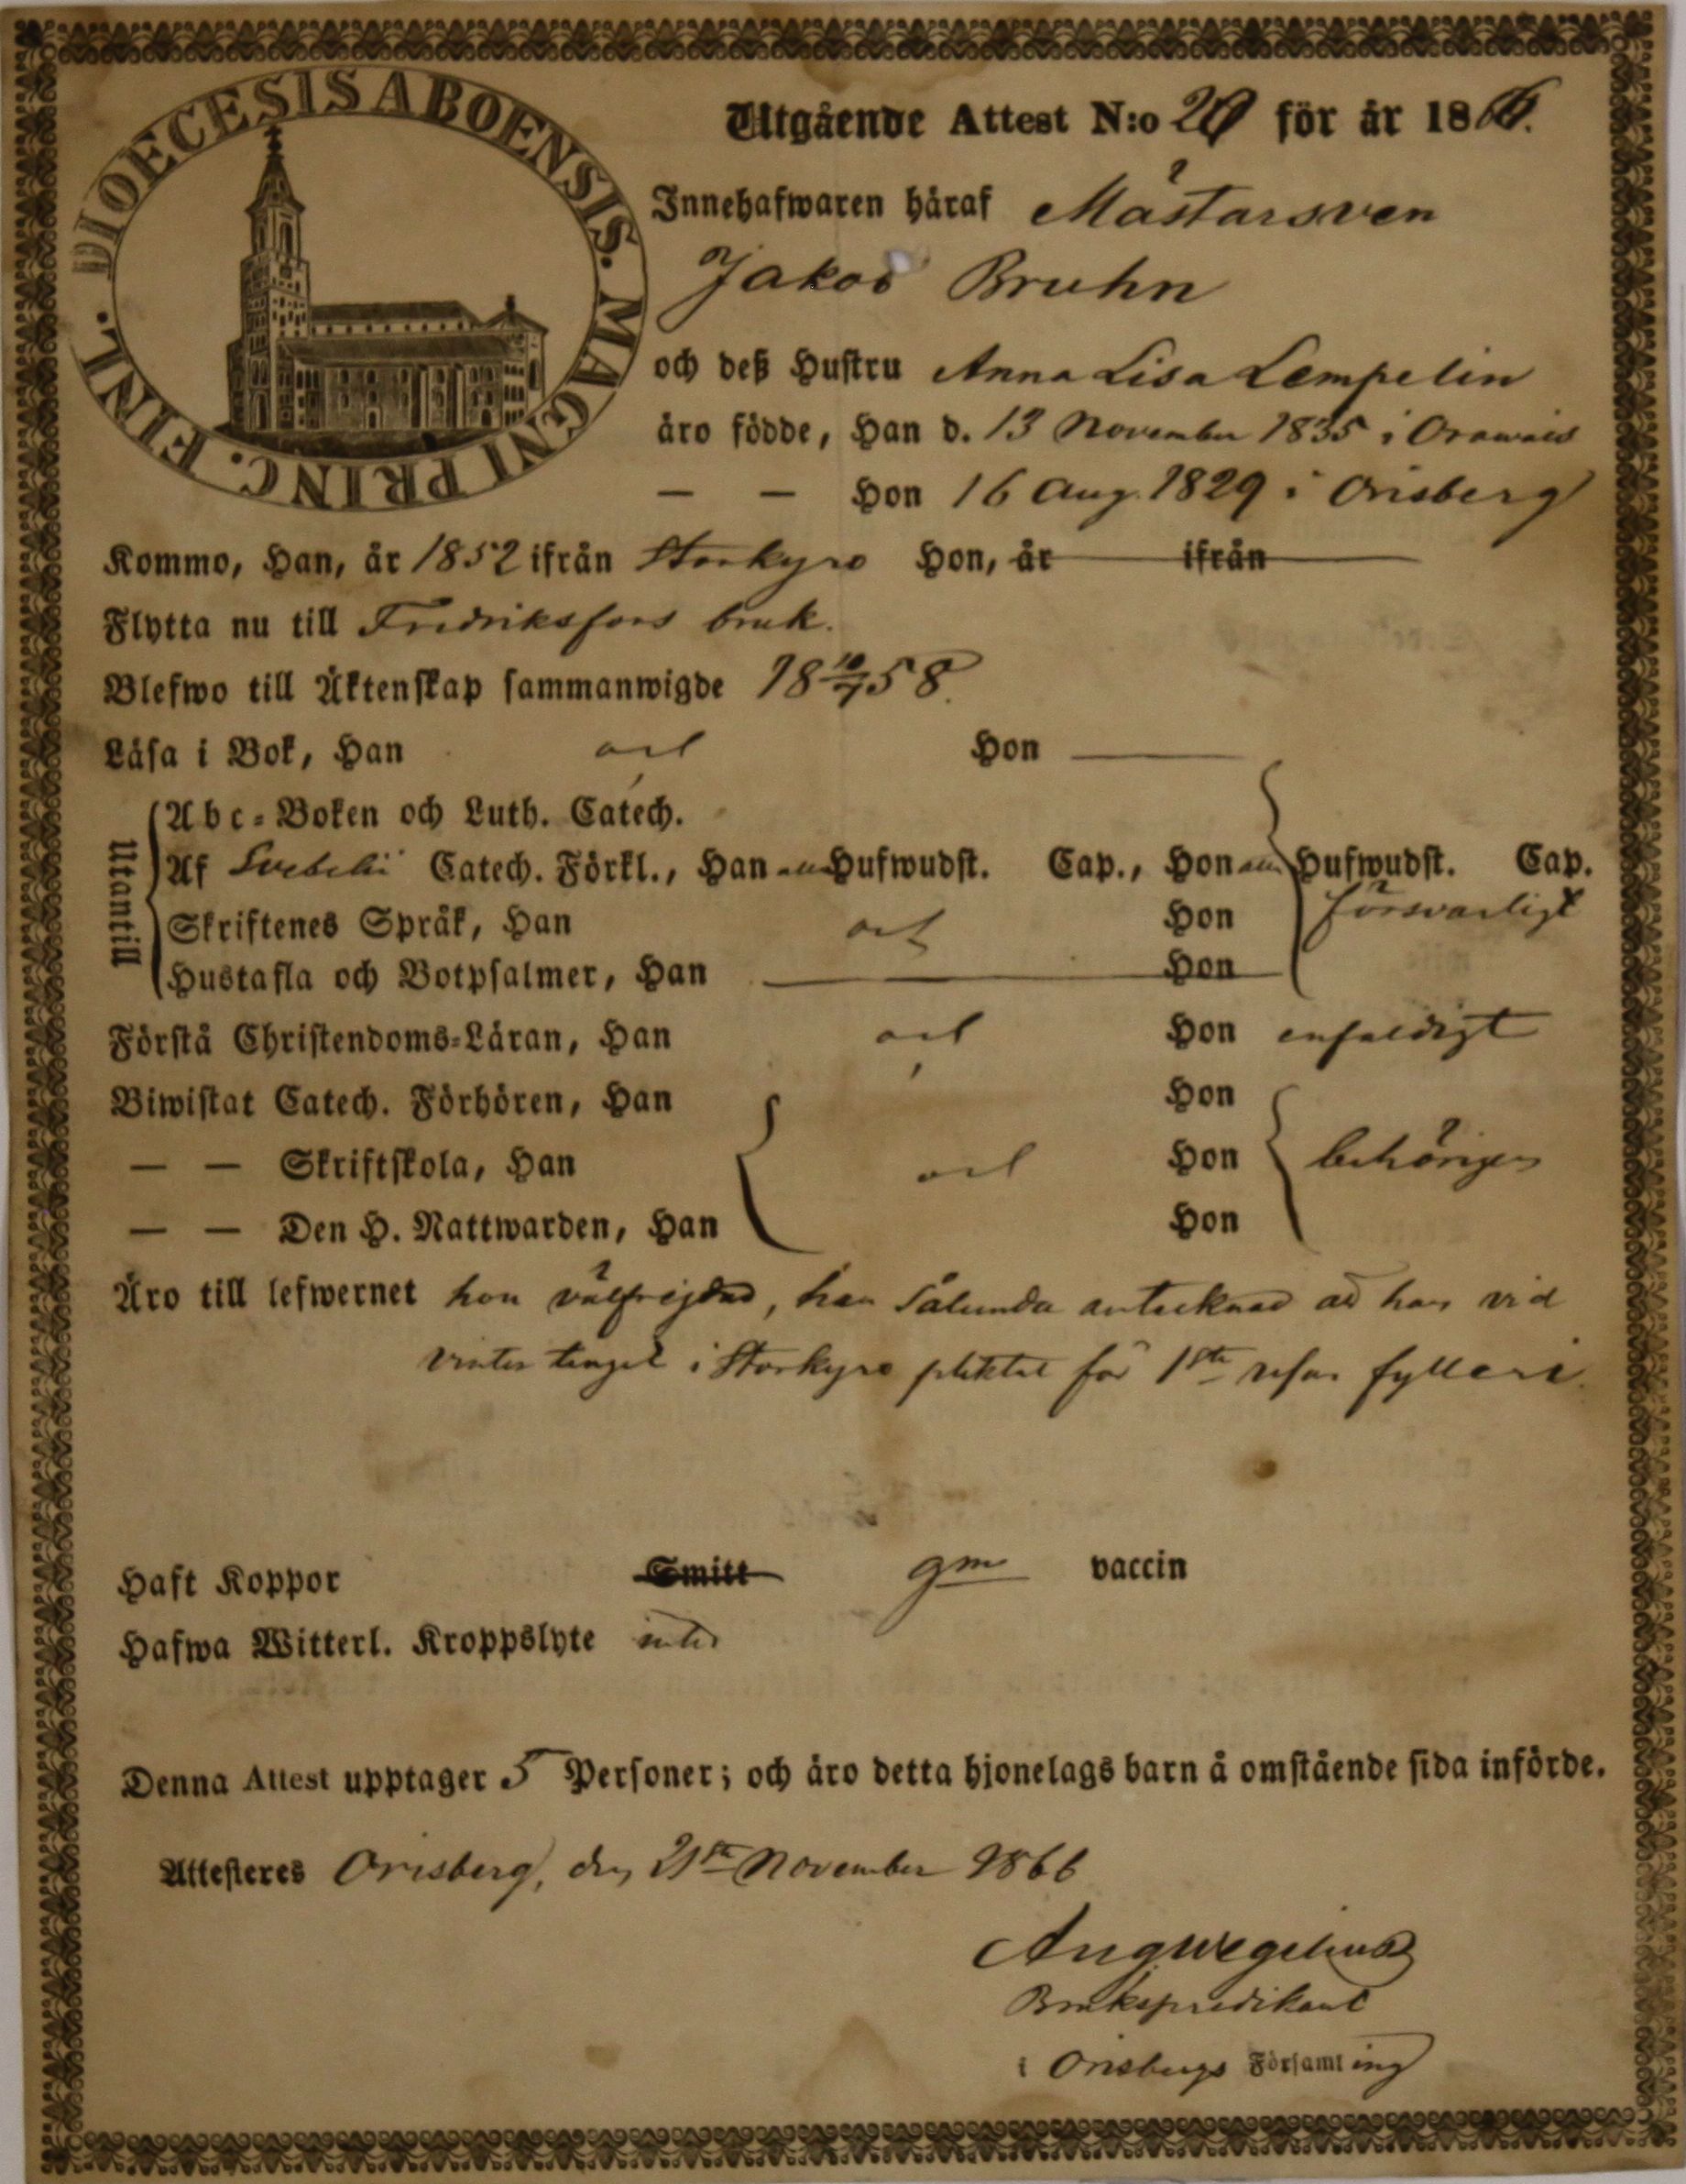 DIOECESIS ABOENSIS. MAGNI PRINC. FINL.
Utgående Attest N:o 20 för år 1866.
Innehafwaren häraf Mästarsven
Jakob Bruhn
och deß Hustru Anna Lisa Lempelin
äro födde, Han d. 13 November 1835 i Orawais
— — Hon 16 Aug. 1829 i Orisberg
Kommo, Han, år 1852 ifrån Storkyro Hon, år ifrån
Flytta nu till Fredriksfors bruk.
Blefwo till Äktenskap sammanwigde 18 10/7 58.
Läsa i Bok, Han och Hon
Utantill
Abc-Boken och Luth. Catech.
Af Svebelii Catech. Förkl., Han Hufwudst. Cap., Hon Hufwudst. Cap.
Skriftenes Språk, Han och Hon försvarligt
Hustafla och Botpsalmer, Han Hon
Förstå Christendoms-Läran, Han och Hon enfaldigt
Biwistat Catech. Förhören, Han Hon
— — Skriftskola, Han och Hon behörigen
— — Den H. Nattwarden, Han Hon
Äro till lefwernet hon välfrejdad, han sålunda antecknad att han vid
vintertinget i Storkyro pliktat för 1sta resan fylleri.
Haft Koppor Smitt gm vaccin
Hafwa Witterl. Kroppslyte intet
Denna Attest upptager 5 Personer; och äro detta hjonelags barn å omstående sida införde.
Attesteres Orisberg, den 21sta November 1866
Aug Wegelius
Brukspredikant
i Orisbergs Församling